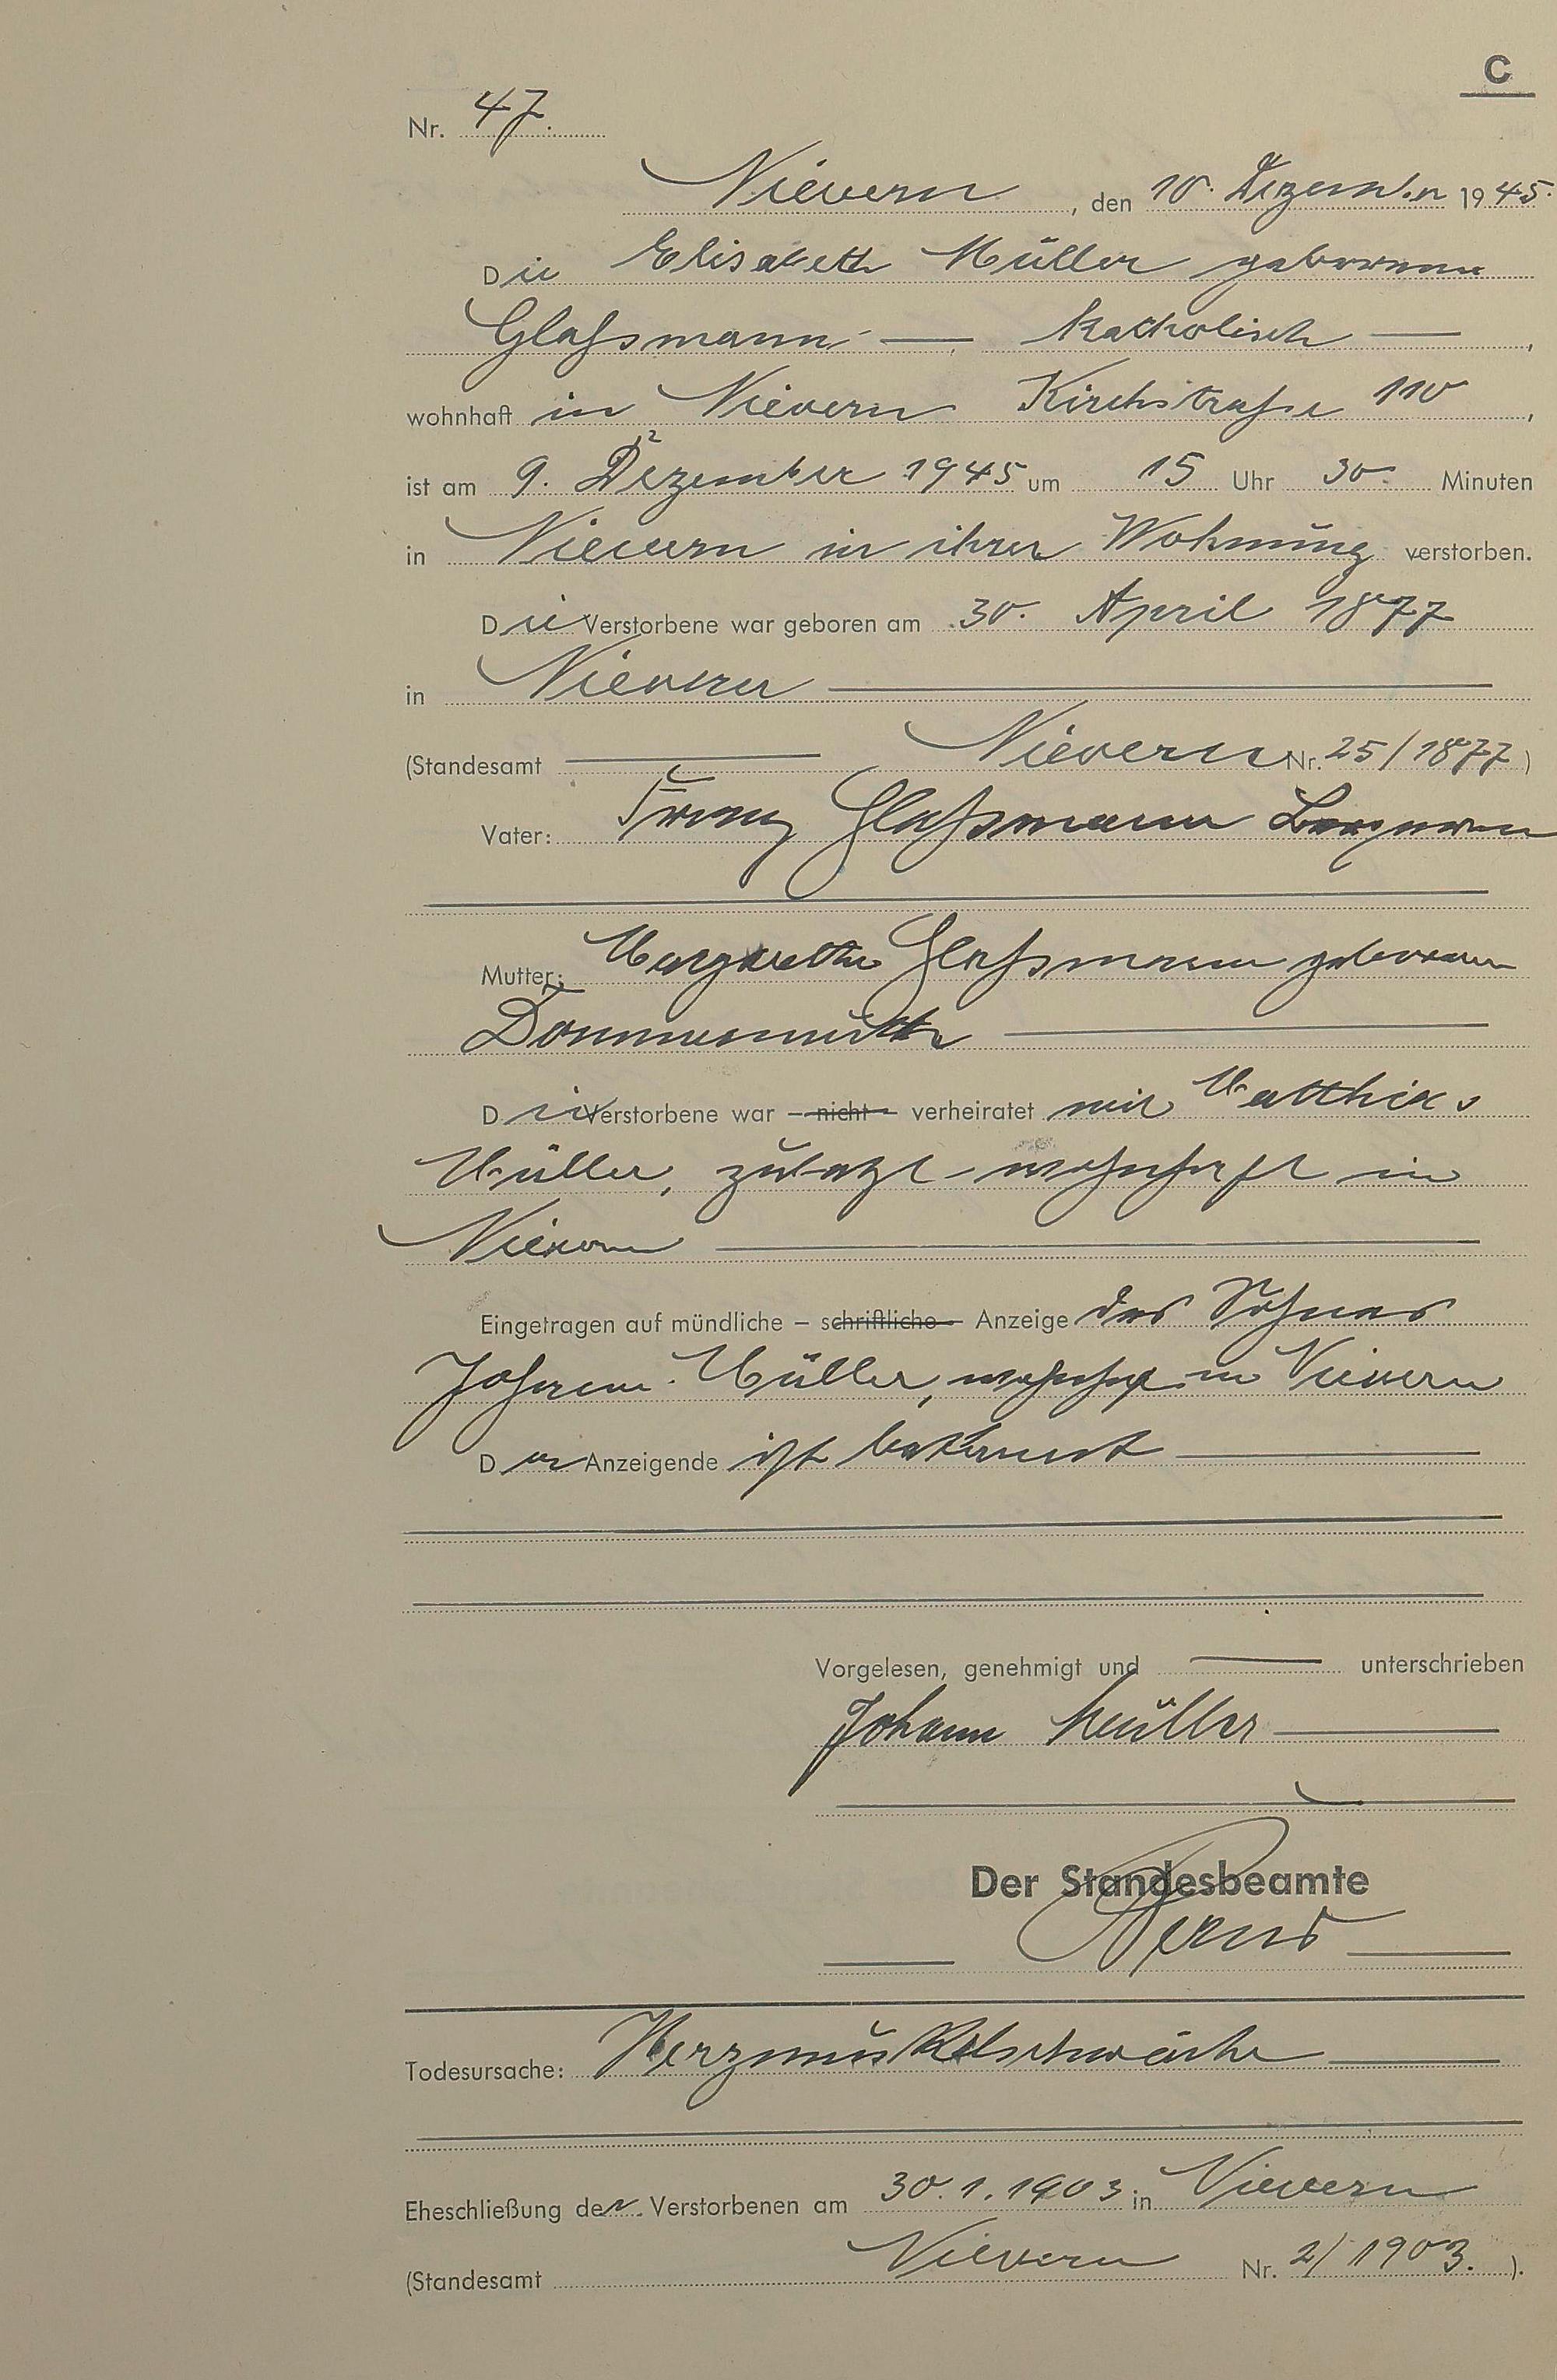 C
Nr. 47.
Nievern, den 10. Dezember 1945.
Die Elisabeth Müller geborene
Glaßmann — katholisch —,
wohnhaft in Nievern Kirchstraße 110,
ist am 9. Dezember 1945 um 15 Uhr 30 Minuten
in Nievern in ihrer Wohnung verstorben.
Die Verstorbene war geboren am 30. April 1877
in Nievern
(Standesamt — Nievern Nr. 25/1877)
Vater: Franz Glaßmann
Mutter: Margarethe Glaßmann geborene
Dommermuth
Die Verstorbene war – nicht – verheiratet mit Matthias
Müller, zuletzt wohnhaft in
Nievern
Eingetragen auf mündliche – schriftliche – Anzeige des Sohnes
Johann Müller, wohnhaft in Nievern
Der Anzeigende ist bekannt
Vorgelesen, genehmigt und — unterschrieben
Johann Müller
Der Standesbeamte
Todesursache: Herzmuskelschwäche
Eheschließung der Verstorbenen am 30.1.1903 in Nievern
(Standesamt Nievern Nr. 2/1903.).